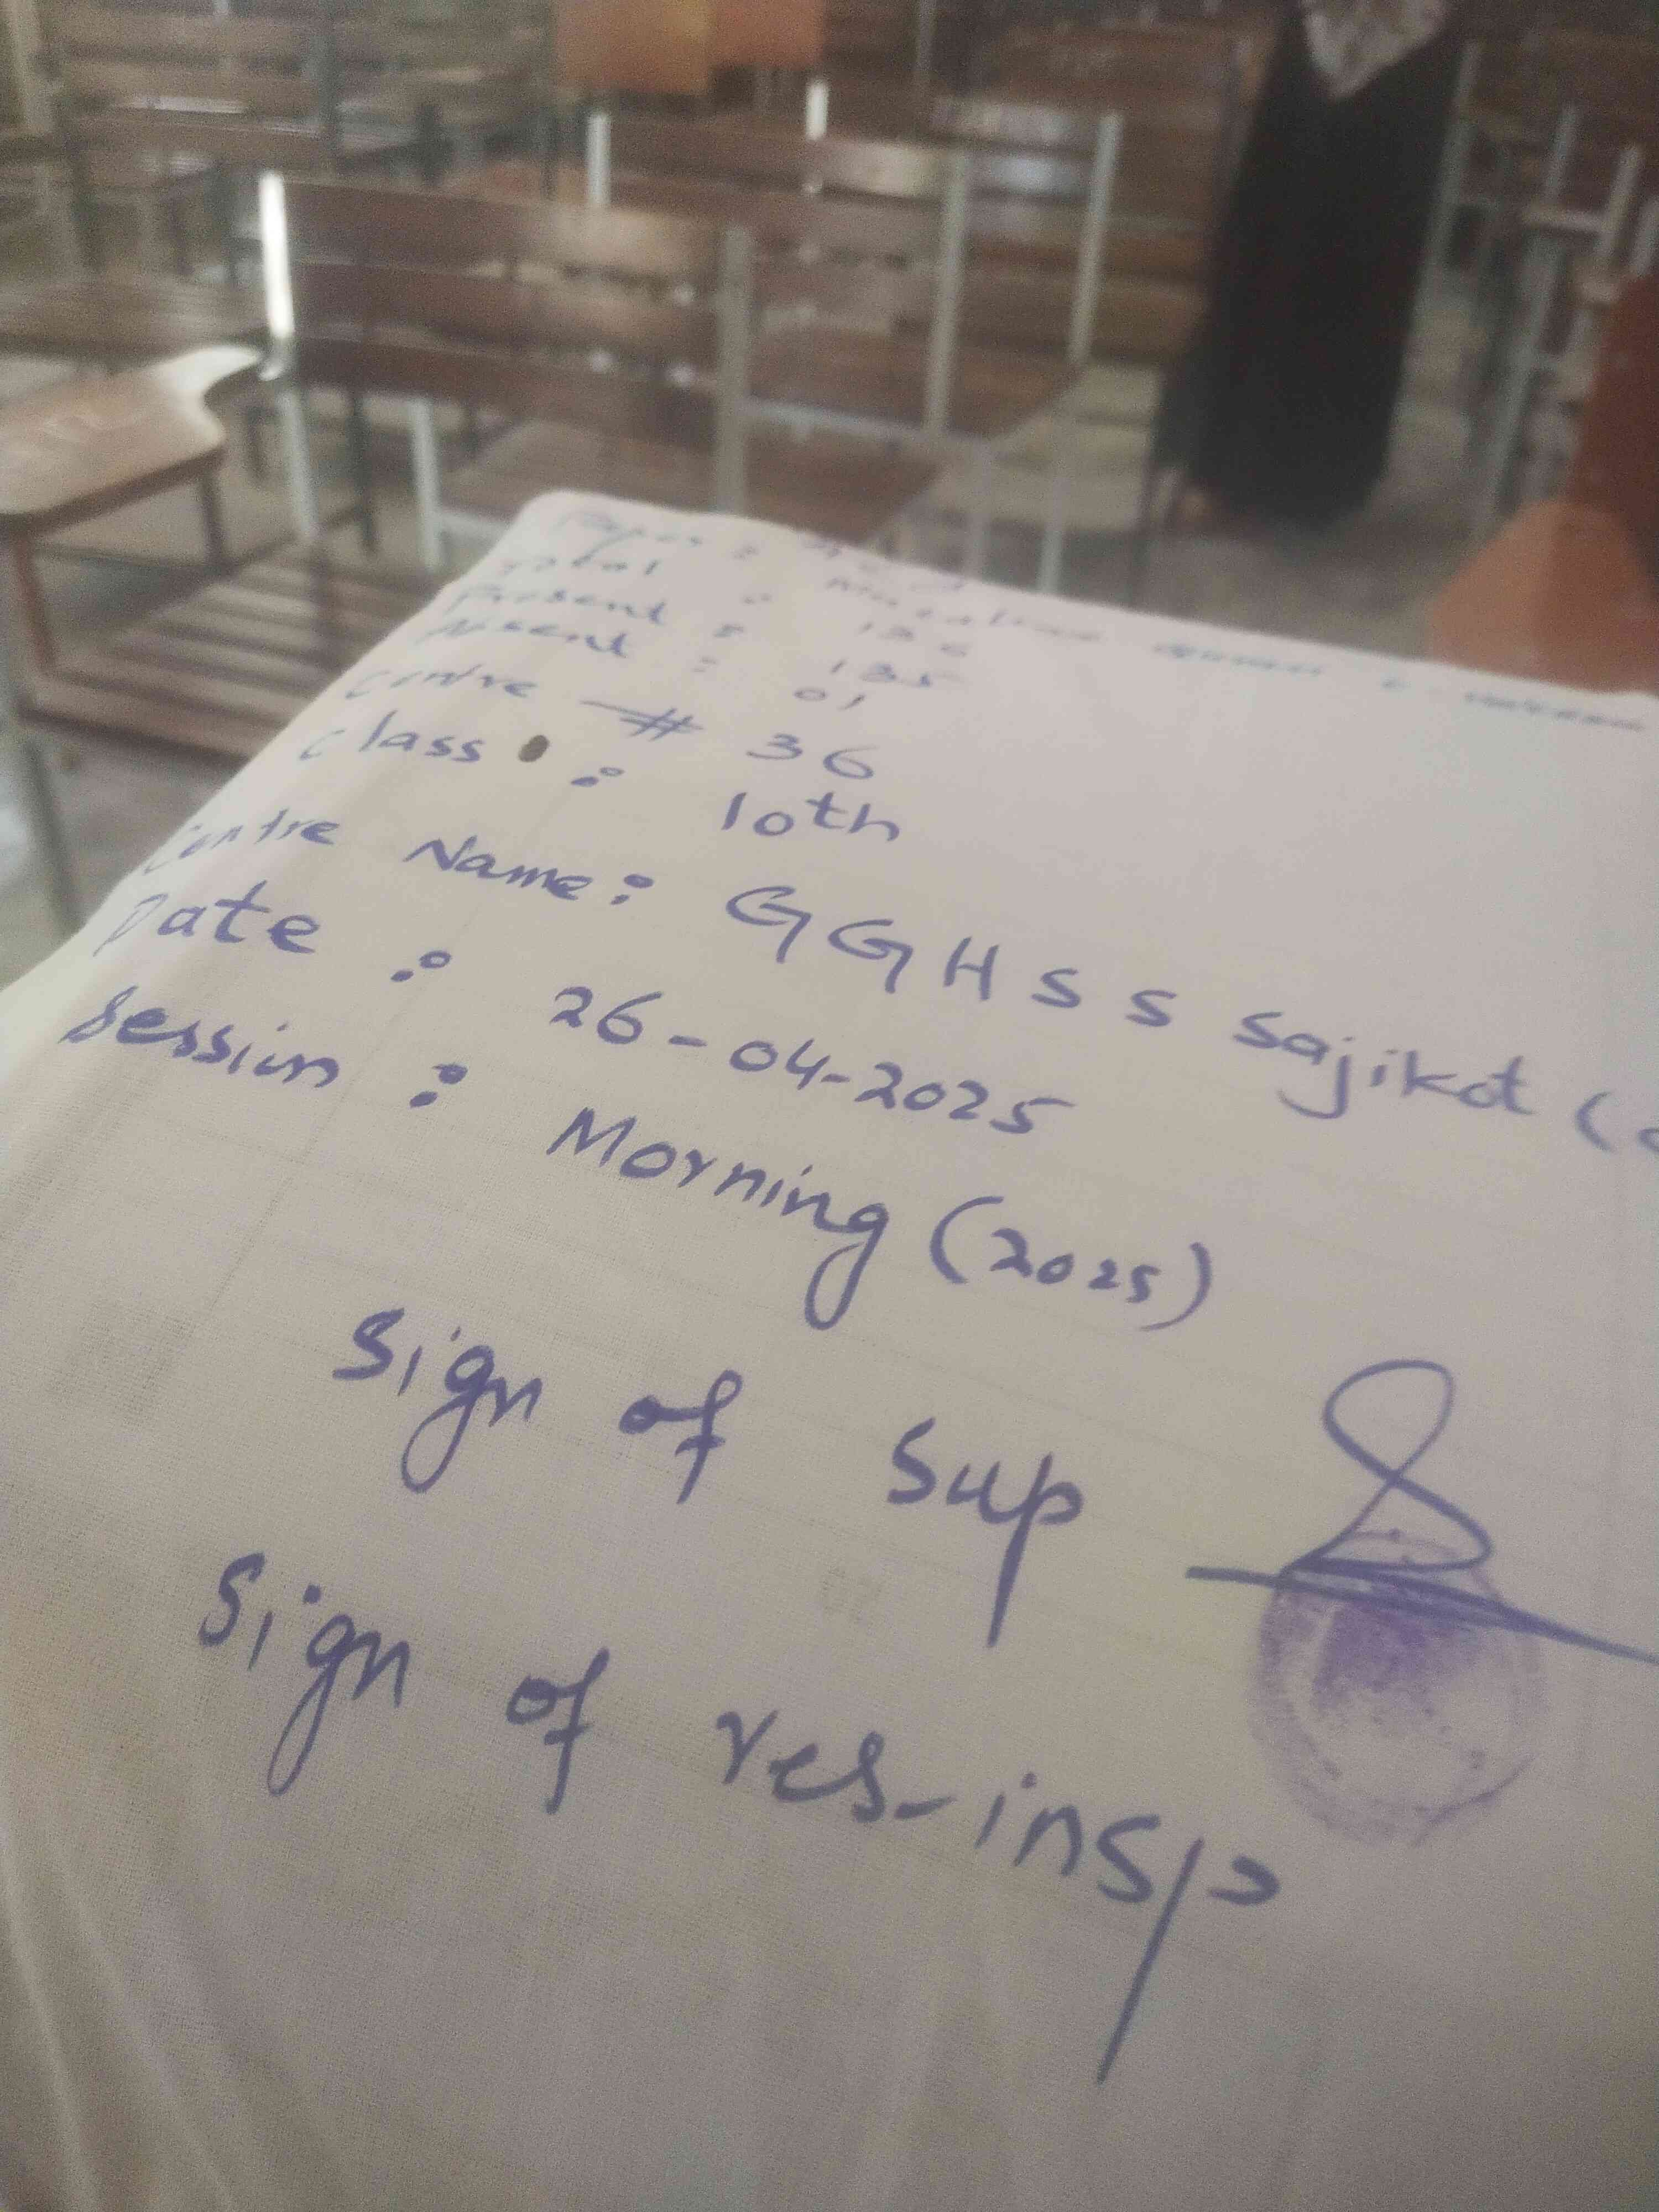 Paper :
Total : 136
Present : 135
Absent : 01
Centre # 36
Class : 10th
Centre Name : GGHSS Sajikot (
Date : 26-04-2025
Session : Morning (2025)
Sign of Sup
Sign of res-insp